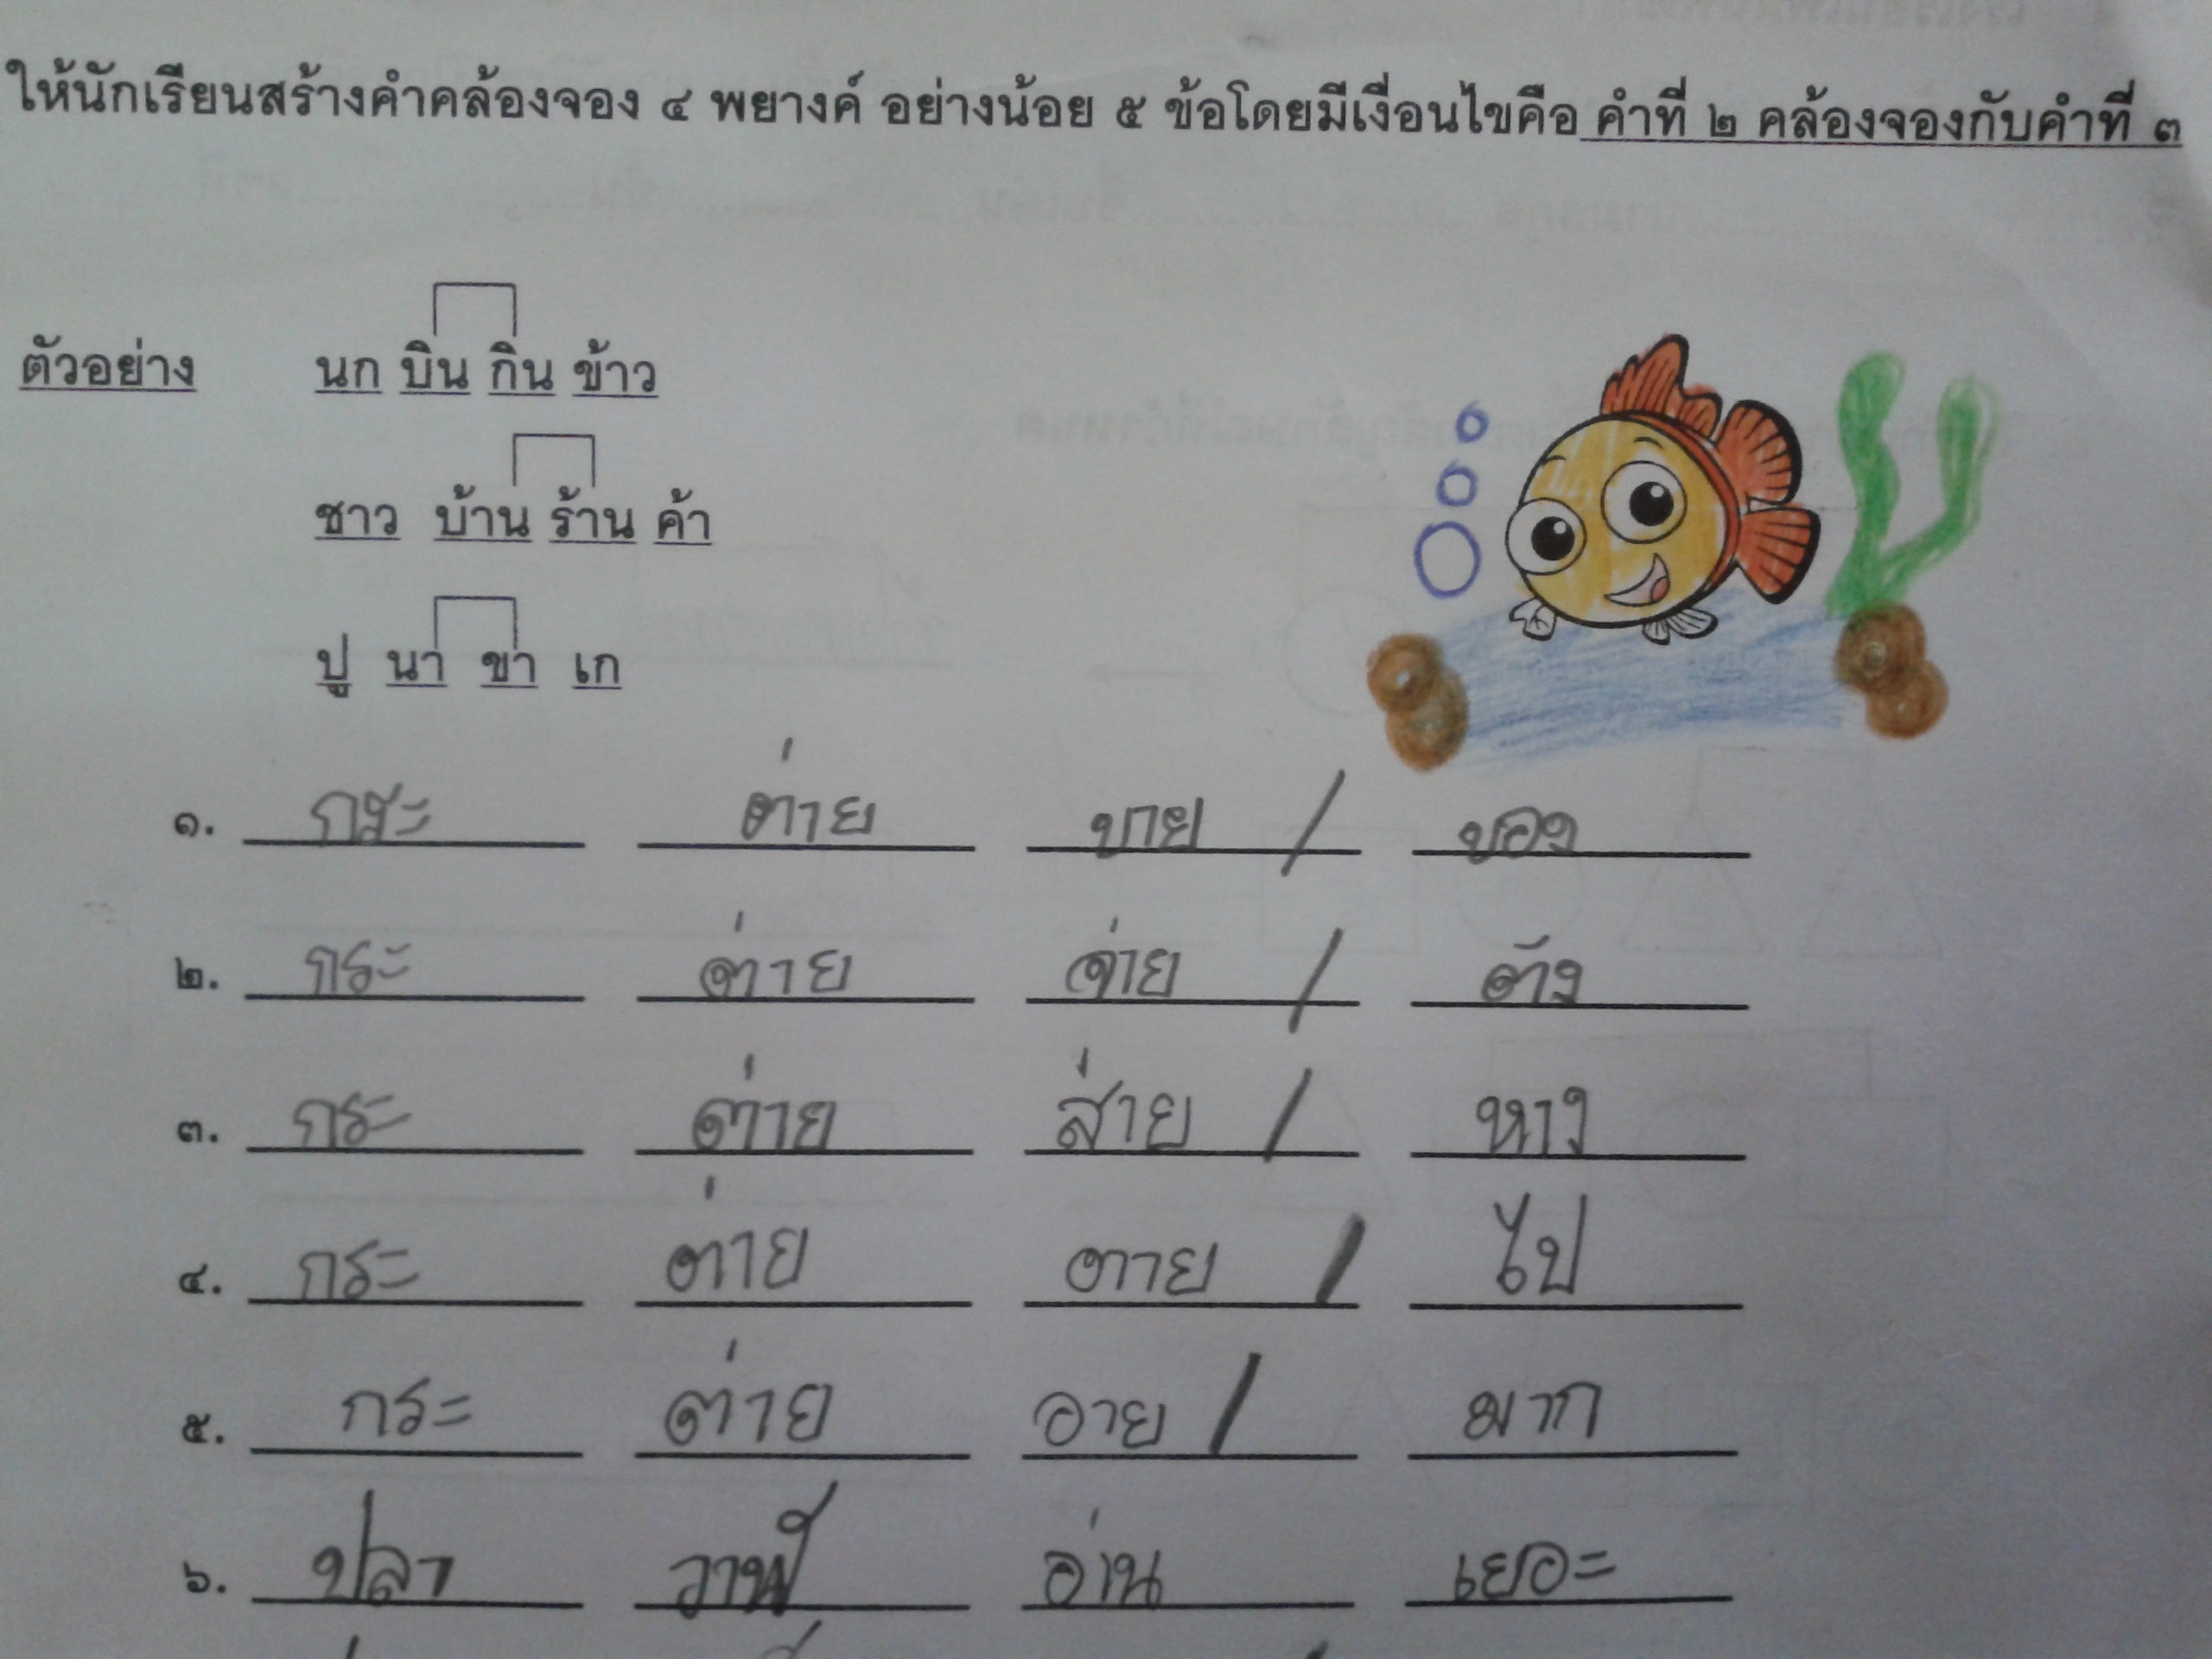 ให้นักเรียนสร้างคำคล้องจอง ๔ พยางค์ อย่างน้อย ๕ ข้อโดยมีเงื่อนไขคือ คำที่ ๒ คล้องจองกับคำที่ ๓
ตัวอย่าง นก บิน กิน ข้าว
ชาว บ้าน ร้าน ค้า
ปู นา ขา เก
๑. กระ ต่าย ขาย / ของ
๒. กระ ต่าย จ่าย / ตัง
๓. กระ ต่าย ส่าย / หาง
๔. กระ ต่าย ตาย / ไป
๕. กระ ต่าย อาย / มาก
๖. ปลา วาฬ อ่าน เยอะ